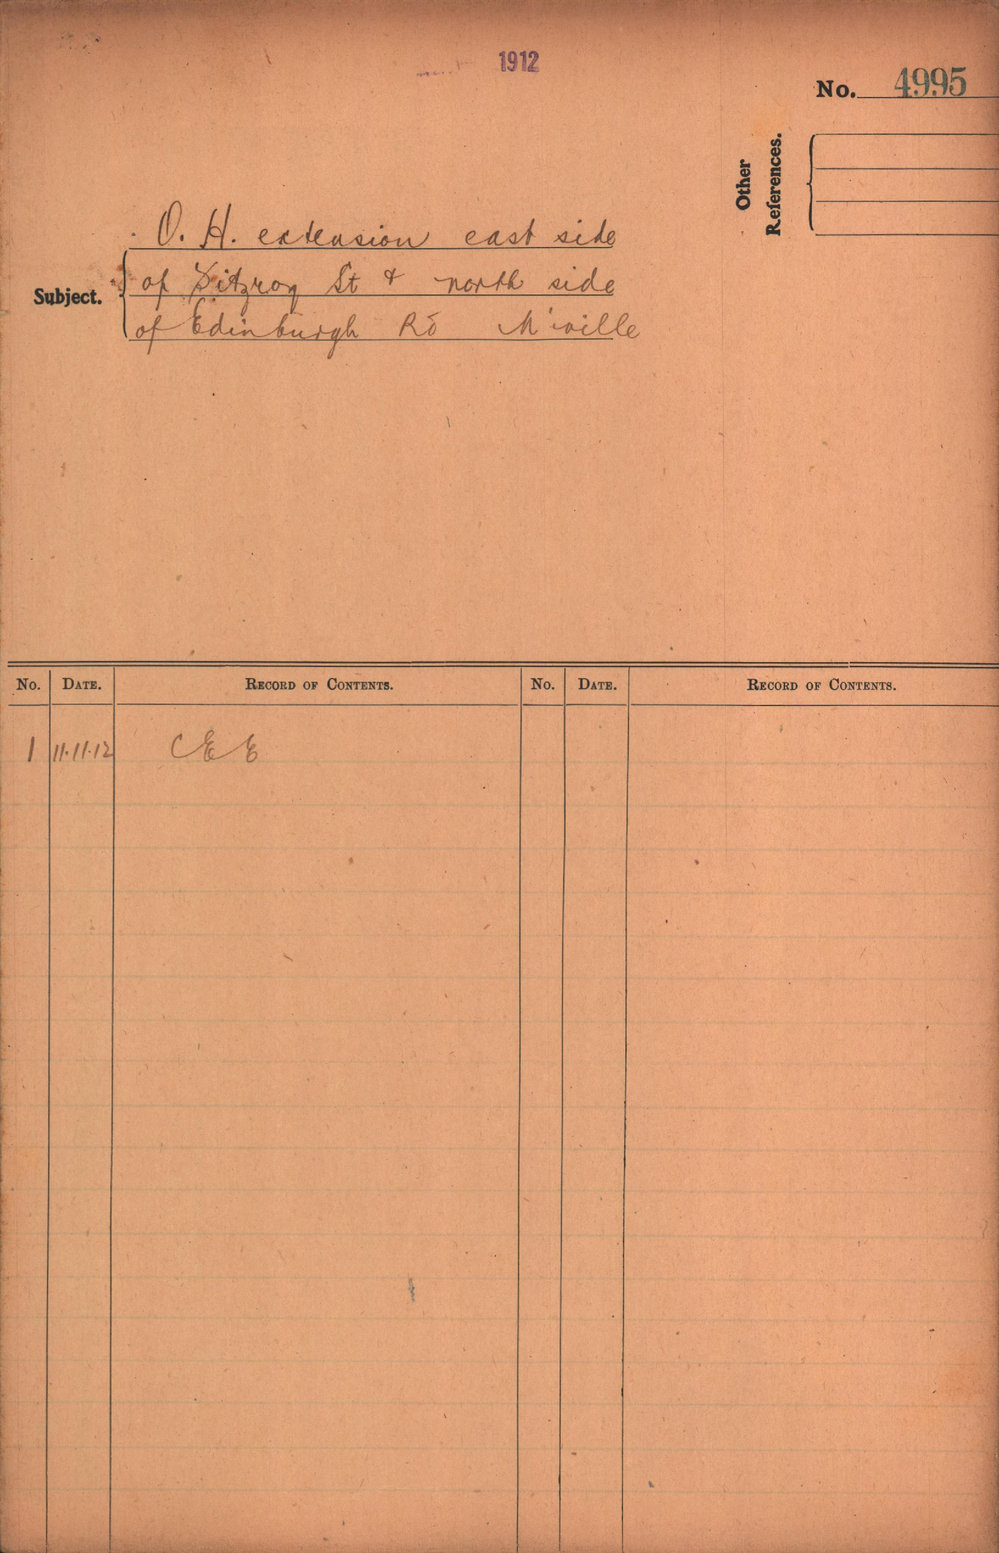 1912
No. 4995
Other
References.
Subject.
O. H. extension east side
of Fitzroy St & north side
of Edinburgh Rd M'ville
No. DATE. RECORD OF CONTENTS. No. DATE. RECORD OF CONTENTS.
1 11.11.12 CEE